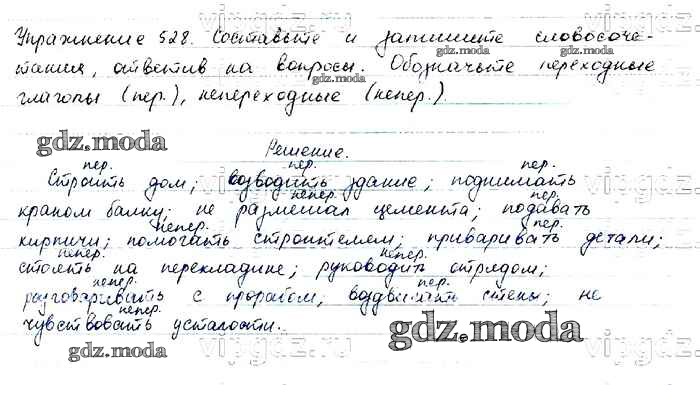 Упражнение 528. Составьте и запишите словосоче-
тания, ответив на вопросы. Обозначьте переходные
глаголы (пер.), непереходные (непер.).
Решение.
пер. пер. пер.
Строить дом; возводить здание; поднимать
непер. пер.
краном балку; не размешал цемента; подавать
непер. пер.
кирпичи; помогать строителем; приваривать детали;
непер. непер.
стоять на перекладине; руководить отрядом;
непер. пер.
разговаривать с прорабом; воздвигать стены; не
непер.
чувствовать усталости.
gdz.moda
gdz.moda
gdz.moda
gdz.moda
gdz.moda
gdz.moda
gdz.moda
vipgdz.ru
vipgdz.ru
vipgdz.ru